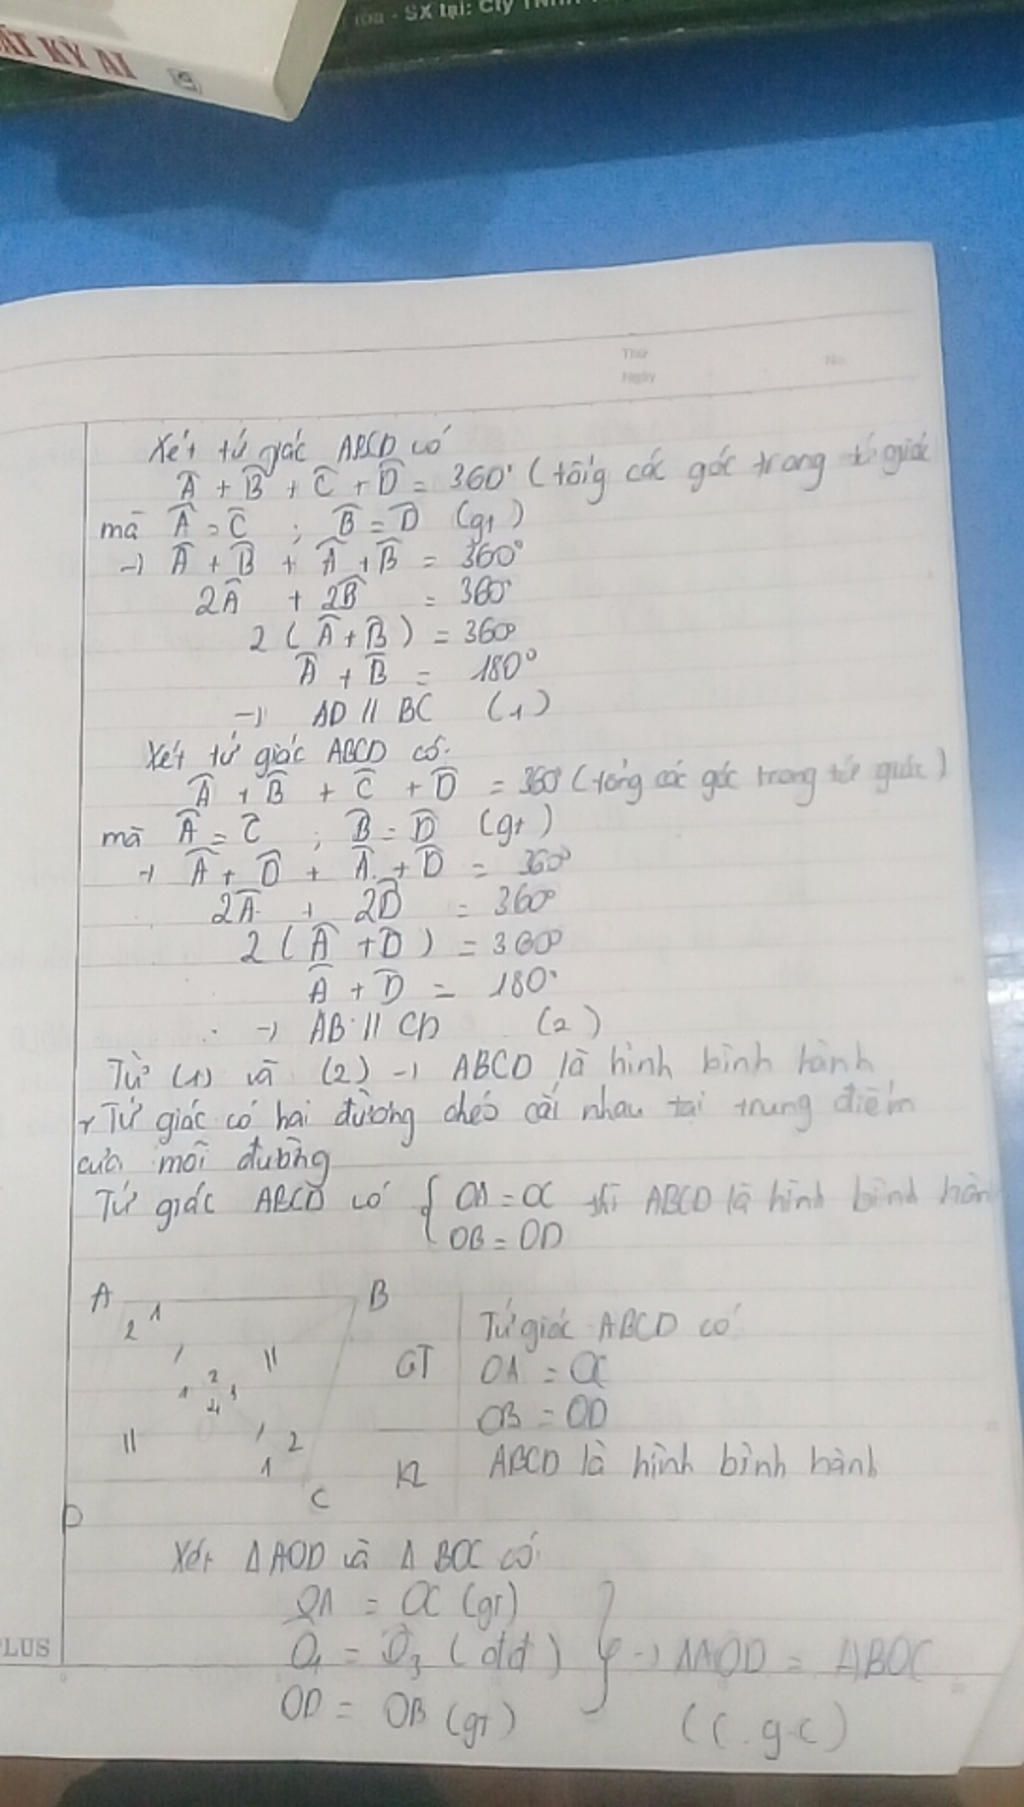 ẤT KỲ AI
òa - SX tại: Cty TNH
Thứ
Ngày
No.
Xét tứ giác ABCD có
Â + B̂ + Ĉ + D̂ = 360° (tổng các góc trong tứ giác
mà Â = Ĉ ; B̂ = D̂ (gt)
→ Â + B̂ + Â + B̂ = 360°
2Â + 2B̂ = 360°
2 (Â + B̂) = 360°
Â + B̂ = 180°
→ AD // BC (1)
Xét tứ giác ABCD có
Â + B̂ + Ĉ + D̂ = 360° (tổng các góc trong tứ giác)
mà Â = Ĉ ; B̂ = D̂ (gt)
→ Â + D̂ + Â + D̂ = 360°
2Â + 2D̂ = 360°
2 (Â + D̂) = 360°
Â + D̂ = 180°
→ AB // CD (2)
Từ (1) và (2) → ABCD là hình bình hành
+ Tứ giác có hai đường chéo cắt nhau tại trung điểm
của mỗi đường
Tứ giác ABCD có { OA = OC thì ABCD là hình bình hàn
OB = OD
A 1 2 B
1 2 3 4
2 1 C
D
Tứ giác ABCD có
GT OA = OC
OB = OD
KL ABCD là hình bình hành
Xét Δ AOD và Δ BOC có
OA = OC (gt)
O1 = O3 (đđ) } → ΔAOD = ΔBOC
OD = OB (gt) (c.g.c)
PLUS